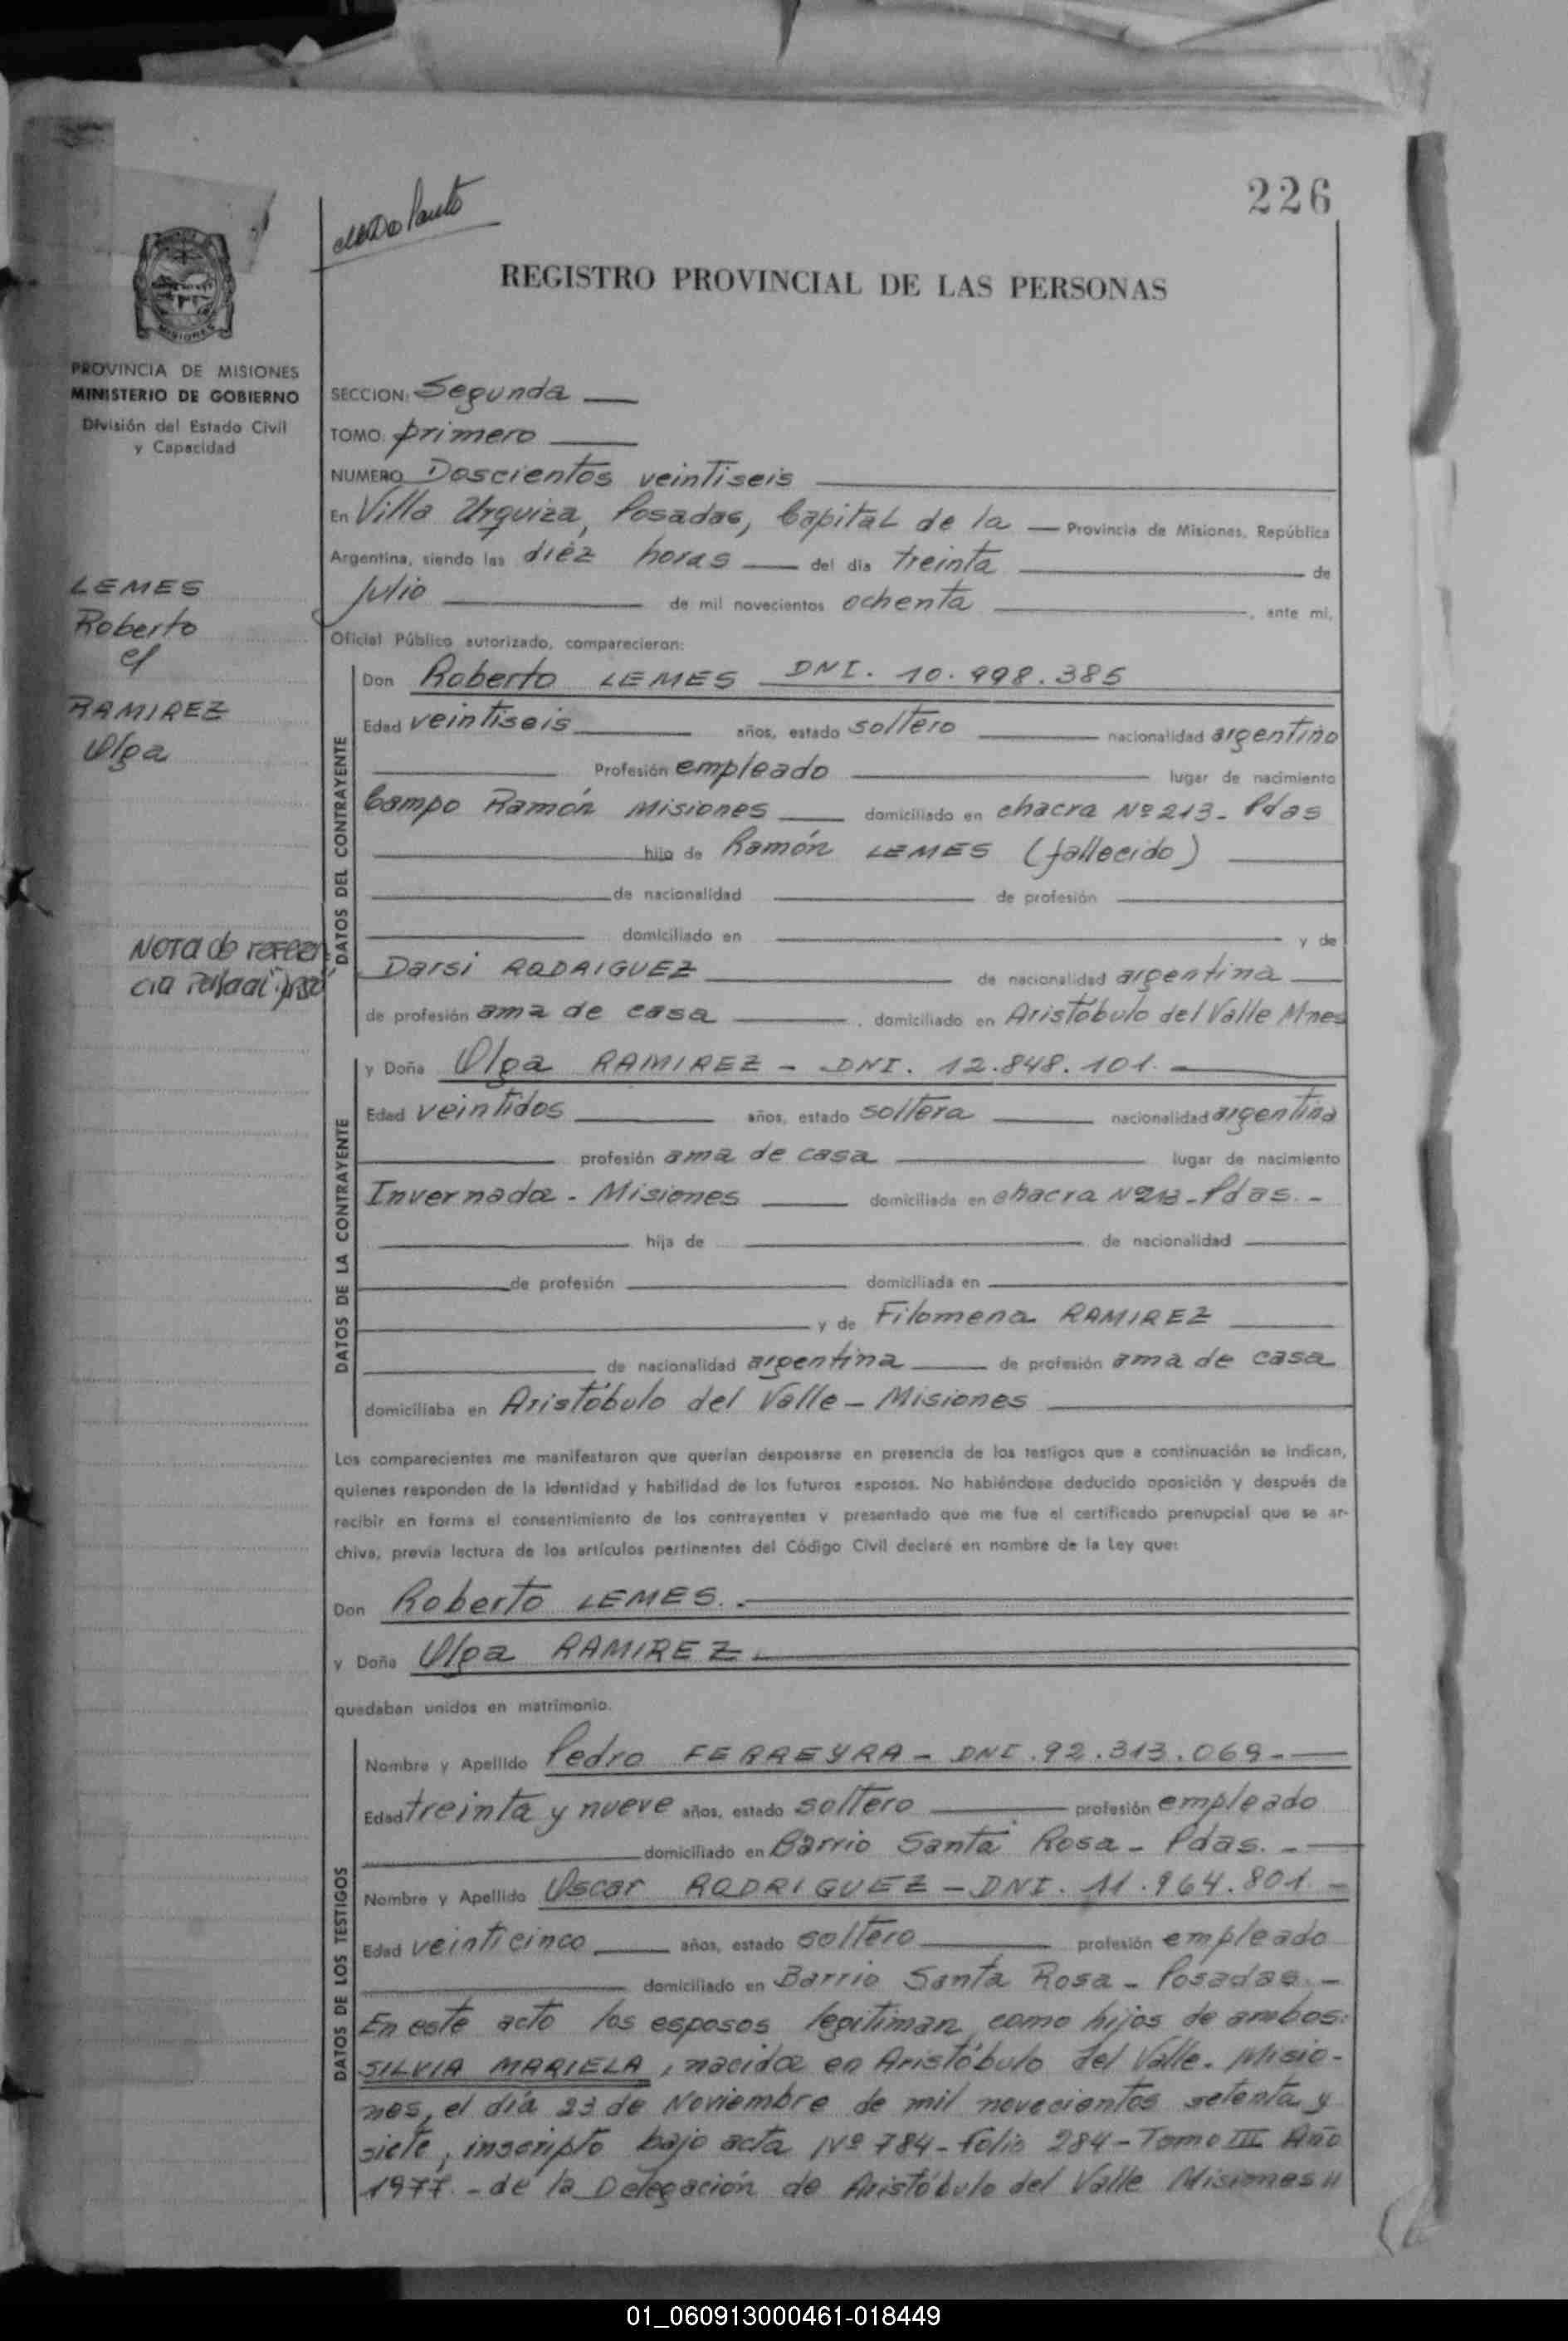 226
REGISTRO PROVINCIAL DE LAS PERSONAS
MISIONES
PROVINCIA DE MISIONES
MINISTERIO DE GOBIERNO
División del Estado Civil
y Capacidad
LEMES
Roberto
c/
RAMIREZ
Olga
NOTA de referen
cia
SECCION: Segunda
TOMO: primero
NUMERO Doscientos veintiseis
En Villa Urquiza, Posadas, Capital de la Provincia de Misiones, República
Argentina, siendo las diez horas del día treinta de
Julio de mil novecientos ochenta, ante mi,
Oficial Público autorizado, comparecieron:
DATOS DEL CONTRAYENTE
Don Roberto LEMES DNI. 10.998.385
Edad veintiseis años, estado soltero nacionalidad argentino
Profesión empleado lugar de nacimiento
Campo Ramón Misiones domiciliado en chacra Nº 213 - Pdas
hijo de Ramón LEMES (fallecido)
de nacionalidad de profesión
domiciliado en y de
Darsi RODRIGUEZ de nacionalidad argentina
de profesión ama de casa, domiciliado en Aristóbulo del Valle Mnes
DATOS DE LA CONTRAYENTE
y Doña Olga RAMIREZ - DNI. 12.848.101.-
Edad veintidos años, estado soltera nacionalidad argentina
profesión ama de casa lugar de nacimiento
Invernada - Misiones domiciliada en chacra Nº 213 - Pdas. -
hija de de nacionalidad
de profesión domiciliada en
y de Filomena RAMIREZ
de nacionalidad argentina de profesión ama de casa
domiciliaba en Aristóbulo del Valle - Misiones
Los comparecientes me manifestaron que querían desposarse en presencia de los testigos que a continuación se indican,
quienes responden de la identidad y habilidad de los futuros esposos. No habiéndose deducido oposición y después de
recibir en forma el consentimiento de los contrayentes y presentado que me fue el certificado prenupcial que se ar-
chiva, previa lectura de los artículos pertinentes del Código Civil declaré en nombre de la Ley que:
Don Roberto LEMES.-
y Doña Olga RAMIREZ.-
quedaban unidos en matrimonio.
DATOS DE LOS TESTIGOS
Nombre y Apellido Pedro FERREYRA - DNI. 92.313.069.-
Edad treinta y nueve años, estado soltero profesión empleado
domiciliado en Barrio Santa Rosa - Pdas. -
Nombre y Apellido Oscar RODRIGUEZ - DNI. 11.964.801. -
Edad veinticinco años, estado soltero profesión empleado
domiciliado en Barrio Santa Rosa - Posadas. -
En este acto los esposos legitiman como hijos de ambos:
SILVIA MARIELA, nacida en Aristóbulo del Valle. Misio-
nes, el día 23 de Noviembre de mil novecientos setenta y
siete, inscripto bajo acta Nº 784 - folio 284 - Tomo III Año
1977. - de la Delegación de Aristóbulo del Valle Misiones //
01_060913000461-018449